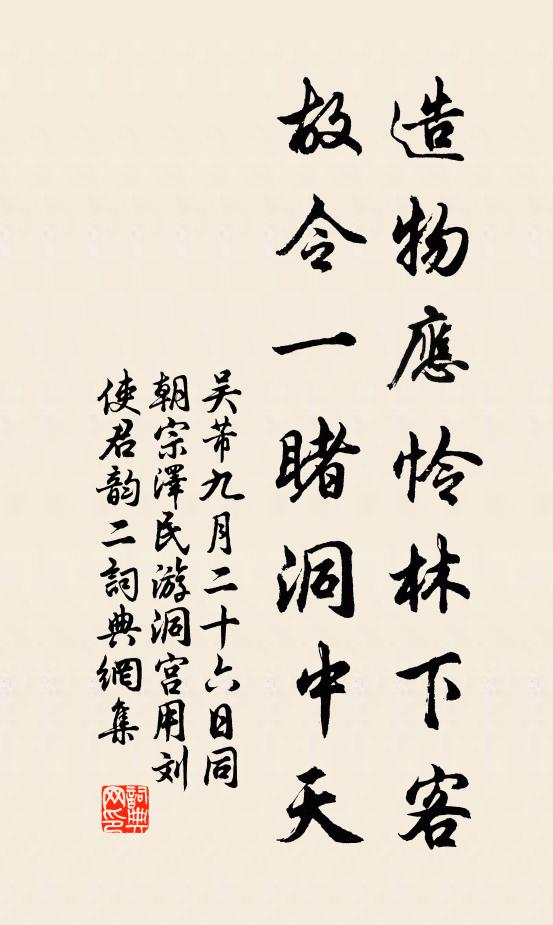 造物應怜林下客
故令一睹洞中天
吴芾九月二十六日同
朝宗澤民游洞宫用刘
使君韵二詞典網集
詞典
网印